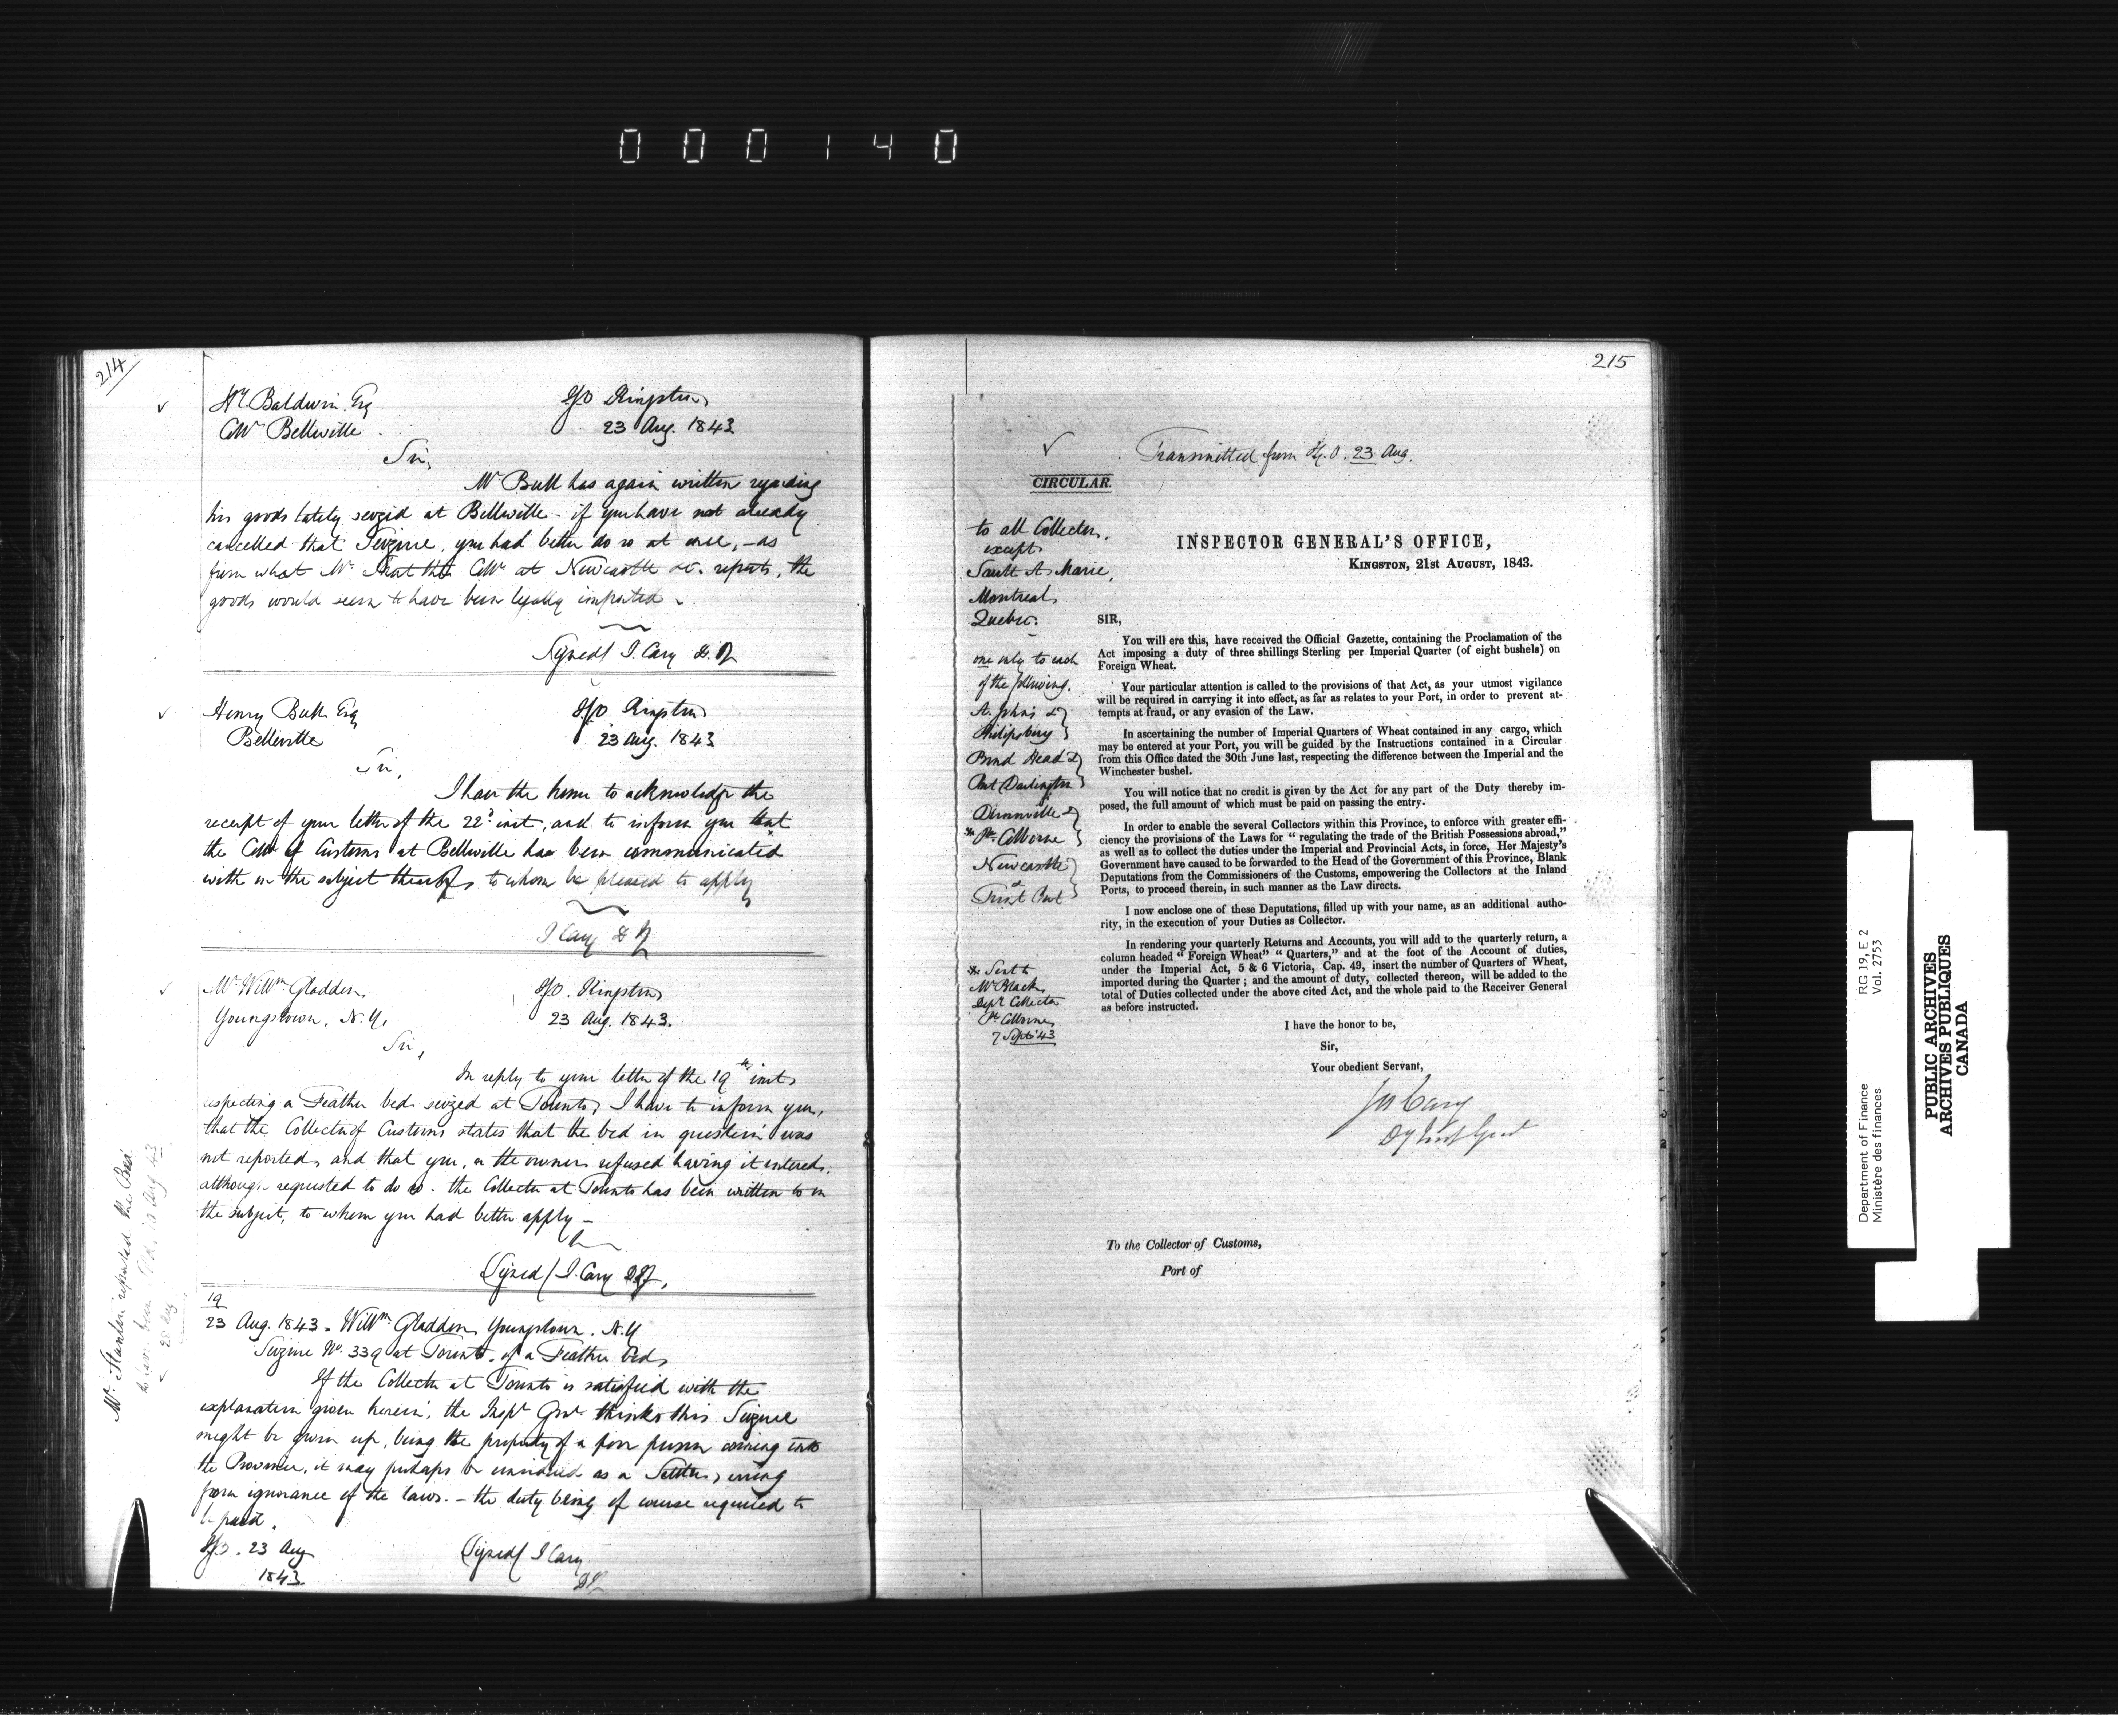 000140
214
Hy Baldwin Esq
Collr Bellville
IGO Kingston
23 Aug. 1843
Sir,
Mr Bull has again written regarding
his goods lately seized at Bellville - if you have not already
cancelled that Seizure, you had better do so at once, - as
from what Mr the Collr at Newcastle &c. reports, the
goods would seem to have been legally imported -
Signed/ J. Cary D.IG
Henry Bull Esq
Belleville
IGO Kingston
23 Aug. 1843
Sir,
I have the honor to acknowledge the
receipt of your letter of the 22d inst, and to inform you that
the Collr of Customs at Bellville has been communicated
with on the subject thereof, to whom be pleased to apply
J Cary D IG
Mr Willm Gladden
Youngstown, N.Y,
IGO. Kingston
23 Aug. 1843.
Sir,
In reply to your letter of the 19th inst
respecting a Feather bed seized at Toronto, I have to inform you,
that the Collector of Customs states that the bed in question was
not reported, and that you, or the owner refused having it entered,
although requested to do so. the Collector at Toronto has been written to on
the subject, to whom you had better apply -
Signed/ J. Cary DIG,
Mr Stanton reported the Bed
to have been 
28 Aug
19
23 Aug. 1843. Willm Gladden, Youngstown. N.Y
Seizure No. 339 at Toronto. of a Feather bed,
If the Collector at Toronto is satisfied with the
explanation given herein, the Inspr Genl thinks this Seizure
might be given up, being the property of a poor person coming into
the Province, it may perhaps be considered as a Settler, erring
from ignorance of the laws. - the duty being of course required to
be paid.
IGO. 23 Aug
1843
Signed/ J Cary
DIG
215
Transmitted from I.G.O. 23 Aug.
CIRCULAR.
to all Collectors,
except
Sault St Marie,
Montreal,
Quebec.
one only to each
of the following.
St. Johns &
Philipsburg
Bond Head &
Port Darlington
Dunnville &
* Pt Colborne
Newcastle
&
Trent Port
* Sent to
Mr Black,
Depy Collector
Pt Colborne,
7 Sept '43
INSPECTOR GENERAL'S OFFICE,
KINGSTON, 21st AUGUST, 1843.
SIR,
You will ere this, have received the Official Gazette, containing the Proclamation of the
Act imposing a duty of three shillings Sterling per Imperial Quarter (of eight bushels) on
Foreign Wheat.
Your particular attention is called to the provisions of that Act, as your utmost vigilance
will be required in carrying it into effect, as far as relates to your Port, in order to prevent at-
tempts at fraud, or any evasion of the Law.
In ascertaining the number of Imperial Quarters of Wheat contained in any cargo, which
may be entered at your Port, you will be guided by the Instructions contained in a Circular
from this Office dated the 30th June last, respecting the difference between the Imperial and the
Winchester bushel.
You will notice that no credit is given by the Act for any part of the Duty thereby im-
posed, the full amount of which must be paid on passing the entry.
In order to enable the several Collectors within this Province, to enforce with greater effi-
ciency the provisions of the Laws for " regulating the trade of the British Possessions abroad,"
as well as to collect the duties under the Imperial and Provincial Acts, in force, Her Majesty's
Government have caused to be forwarded to the Head of the Government of this Province, Blank
Deputations from the Commissioners of the Customs, empowering the Collectors at the Inland
Ports, to proceed therein, in such manner as the Law directs.
I now enclose one of these Deputations, filled up with your name, as an additional autho-
rity, in the execution of your Duties as Collector.
In rendering your quarterly Returns and Accounts, you will add to the quarterly return, a
column headed " Foreign Wheat" " Quarters," and at the foot of the Account of duties,
under the Imperial Act, 5 & 6 Victoria, Cap. 49, insert the number of Quarters of Wheat,
imported during the Quarter ; and the amount of duty, collected thereon, will be added to the
total of Duties collected under the above cited Act, and the whole paid to the Receiver General
as before instructed.
I have the honor to be,
Sir,
Your obedient Servant,
Jos Cary
Dy Insp Genl
To the Collector of Customs,
Port of
Department of Finance
Ministère des finances
RG 19, E 2
Vol. 2753
PUBLIC ARCHIVES
ARCHIVES PUBLIQUES
CANADA